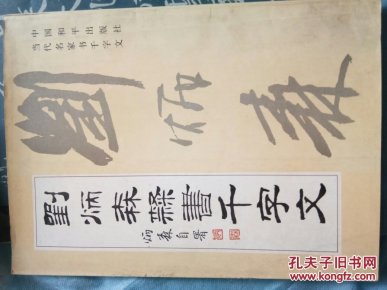 中国和平出版社
当代名家书千字文
劉炳森
劉炳森隸書千字文
炳森自署
孔夫子旧书网